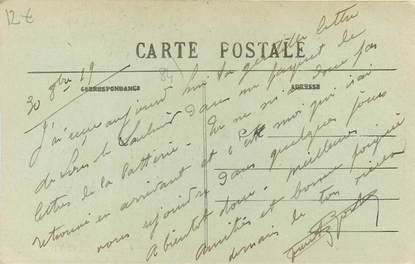 12€
CARTE POSTALE
CORRESPONDANCE
ADRESSE
84
30 9bre 19
J'ai reçu aujourd'hui ta gentille lettre
de dans un paquet de
lettres de la Batterie. Tu ne m'as donc pas
retrouvé en arrivant et c'est moi qui irai
vous rejoindre dans quelques jours
A bientôt donc. Meilleures
amitiés et bonne poignée
de main de ton vieux